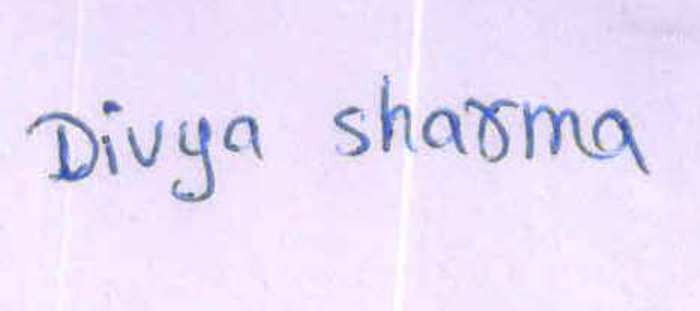 Divya sharma